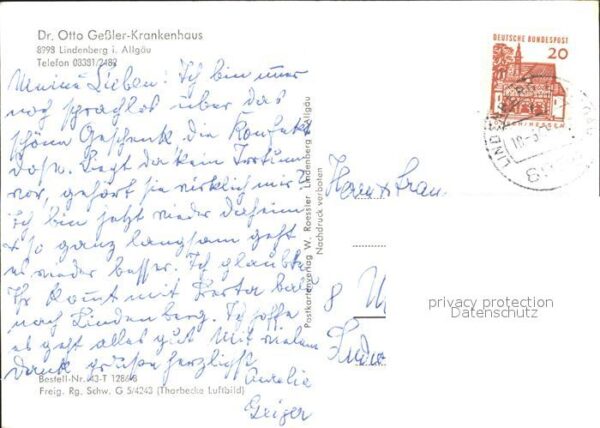 Dr. Otto Geßler-Krankenhaus
8998 Lindenberg i. Allgäu
Telefon 08381/2482
Meine Lieben! Ich bin immer
noch sprachlos über das
schöne Geschenk, die Konfekt
dose. Liegt da kein Irrtum
vor, gehört sie wirklich mir?
Ich bin jetzt wieder daheim
+ so ganz langsam geht
es wieder besser. Ich glaubte
Ihr kommt mit bald
nach Lindenberg. Ich hoffe
es geht alles gut. Mit vielem
Dank grüße herzlichst
Amalie
Geiger
Bestell-Nr. 43-T 12868
Freig. Rg. Schw. G 5/4243 (Thorbecke Luftbild)
Postkartenverlag W. Roessler Lindenberg Allgäu
Nachdruck verboten
DEUTSCHE BUNDESPOST
20
LINDENBERG
Herrn + Frau
8 M
privacy protection
Datenschutz